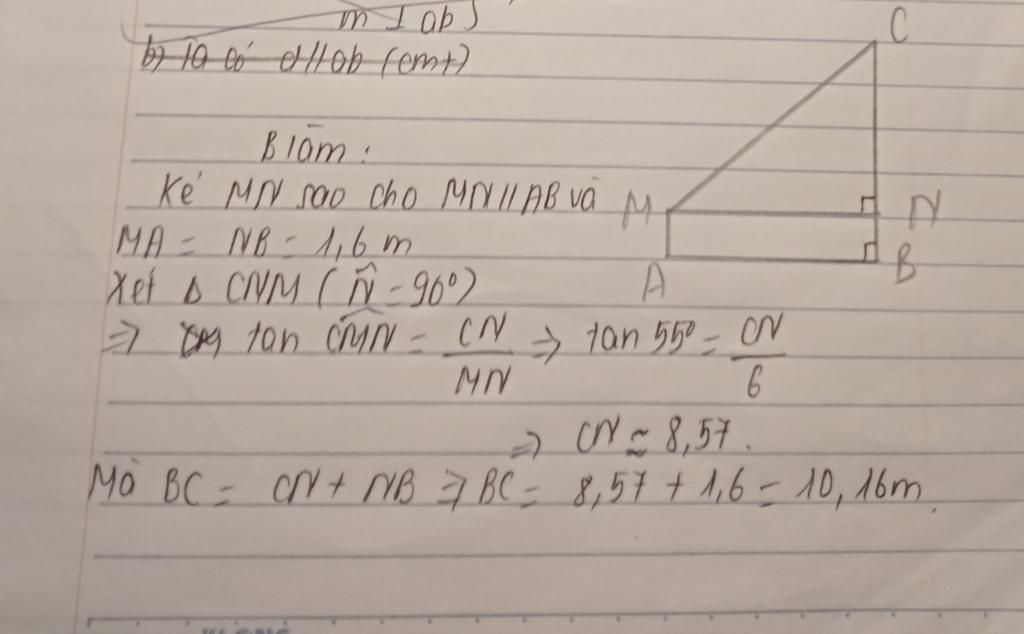 m ⊥ ab)
b) Ta có d//ab (cmt)
Blàm:
Kẻ MN sao cho MN//AB và
MA = NB = 1,6 m
Xét Δ CNM (N̂ = 90°)
⇒ tan CMN = CN/MN ⇒ tan 55° = CN/6
⇒ CN ≈ 8,57.
Mà BC = CN + NB ⇒ BC = 8,57 + 1,6 = 10,16m.
C
M
N
A
B